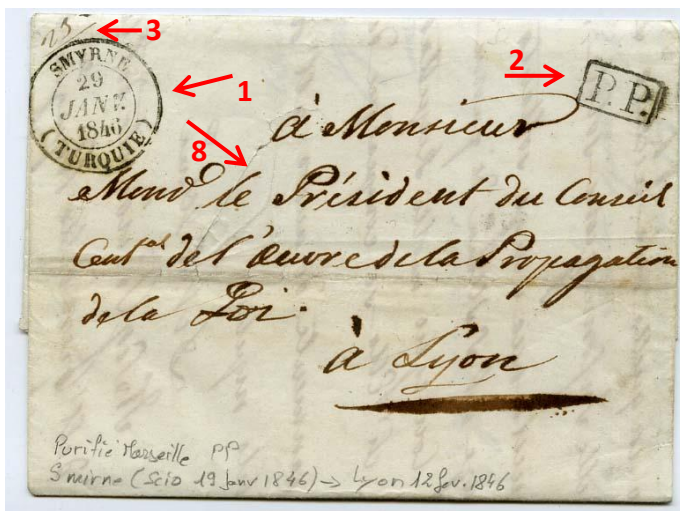 25
3
SMYRNE
29
JANV.
1846
(TURQUIE)
1
2
P.P.
8
à Monsieur
le Président du Conseil
Cent.al de l'œuvre de la Propagation
de la Foi.
à Lyon
Purifié Marseille PP
Smirne (Scio 19 Janv 1846) → Lyon 12 fev. 1846